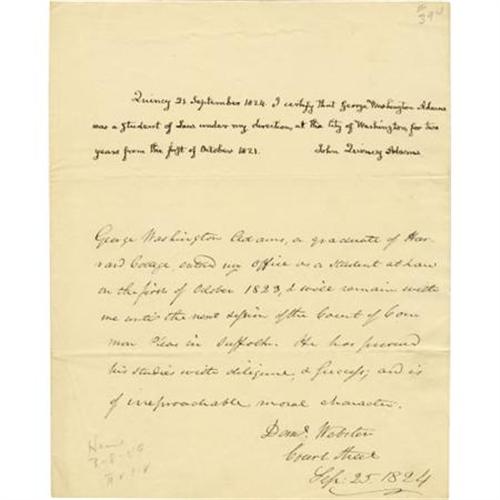 Quincy 21 September 1824. I certify that George Washington Adams
was a Student of Law under my direction, at the city of Washington, for two
years from the first of October 1821. John Quincy Adams
George Washington Adams, a graduate of Har-
vard College, entered my office as a student at Law
on the first of October 1823, & will remain with
me until the next session of the Court of Com
mon Pleas in Suffolk. He has pursued
his studies with diligence, & success; and is
of irreproachable moral character.
Danl. Webster
Court Street
Sep. 25. 1824